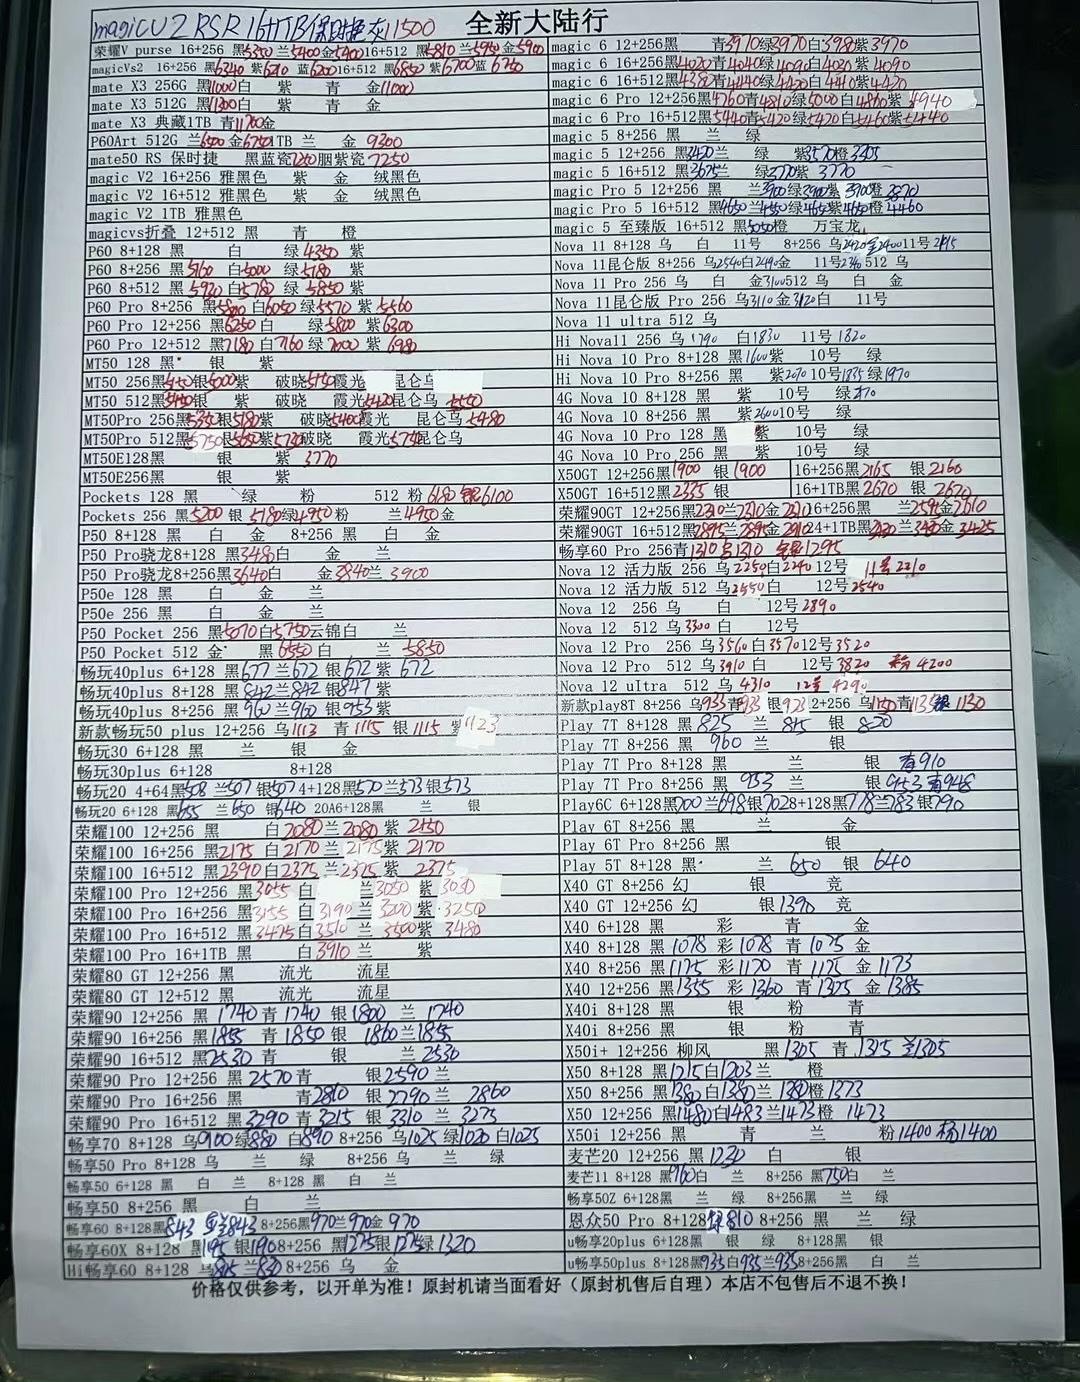 magicV2 RSR 16+1TB保时捷灰11500
全新大陆行
荣耀V purse 16+256 黑5350兰5400金5400 16+512 黑5810兰5950金5900
magicVs2 16+256 黑6340 紫6210 蓝6200 16+512 黑6850 紫6700蓝 6750
mate X3 256G 黑11000白 紫 青 金11000
mate X3 512G 黑11300白 紫 青 金
mate X3 典藏1TB 青11700金
P60Art 512G 兰6500金6750 1TB 兰 金 9300
mate50 RS 保时捷 黑蓝瓷7250胭紫瓷7250
magic V2 16+256 雅黑色 紫 金 绒黑色
magic V2 16+512 雅黑色 紫 金 绒黑色
magic V2 1TB 雅黑色
magicvs折叠 12+512 黑 青 橙
P60 8+128 黑 白 绿4350 紫
P60 8+256 黑5160 白5000 绿5180 紫
P60 8+512 黑5920白5780 绿5850紫
P60 Pro 8+256 黑5800白6050绿5570 紫5560
P60 Pro 12+256 黑6250白 绿5800 紫6300
P60 Pro 12+512 黑7180白7160绿7000 紫6980
MT50 128 黑 银 紫
MT50 256黑 银5000紫 破晓5150霞光 昆仑乌
MT50 512黑 银 紫 破晓 霞光5420昆仑乌5550
MT50Pro 256黑5350银5180紫 破晓5400霞光 昆仑乌5480
MT50Pro 512黑5750银 紫 破晓 霞光5750昆仑乌
MT50E128黑 银 紫 3770
MT50E256黑 银 紫
Pockets 128 黑 绿 粉 512 粉6180 银6100
Pockets 256 黑5200 银 5180绿4950粉 兰4950金
P50 8+128 黑 白 金 8+256 黑 白 金
P50 Pro骁龙8+128 黑3480白 金 兰
P50 Pro骁龙8+256黑3640白 金3840兰 3900
P50e 128 黑 白 金 兰
P50e 256 黑 白 金 兰
P50 Pocket 256 黑5070白5750云锦白 兰
P50 Pocket 512 金 黑6550白 兰 5850
畅玩40plus 6+128 黑677兰672 银672紫 672
畅玩40plus 8+128 黑842兰842银847紫
畅玩40plus 8+256 黑960兰960 银953紫
新款畅玩50 plus 12+256 乌1113 青1115 银1115 紫1123
畅玩30 6+128 黑 兰 银 金
畅玩30plus 6+128 8+128
畅玩20 4+64黑508 兰507 银507 4+128黑570兰573银573
畅玩20 6+128 黑655 兰650 银640 20A6+128黑 兰 银
荣耀100 12+256 黑 白2080兰2080 紫 2150
荣耀100 16+256 黑2175 白2170兰2175紫 2170
荣耀100 16+512 黑2390白2375兰2375紫 2375
荣耀100 Pro 12+256 黑3055 白 兰3050 紫3030
荣耀100 Pro 16+256 黑3155 白3190兰3200紫3250
荣耀100 Pro 16+512 黑3475白3510兰3500紫3480
荣耀100 Pro 16+1TB 黑 白3910 兰 紫
荣耀80 GT 12+256 黑 流光 流星
荣耀80 GT 12+512 黑 流光 流星
荣耀90 12+256 黑1740青1740 银1800 兰 1740
荣耀90 16+256 黑1855 青1850银 1860兰1855
荣耀90 16+512 黑2530 青 银 兰 2530
荣耀90 Pro 12+256 黑2570青 银2590兰
荣耀90 Pro 16+256 黑 青2810 银2790兰 2860
荣耀90 Pro 16+512 黑3290青3215 银3310兰 3275
畅享70 8+128 乌900绿880 白890 8+256 乌1025绿1020白1025
畅享50 Pro 8+128 乌 兰 绿 8+256 乌 兰 绿
畅享50 6+128 黑 白 兰 8+128 黑 白 兰
畅享50 8+256 黑 白 兰
畅享60 8+128黑843 兰843 8+256黑970兰970金 970
畅享60X 8+128 黑1195 银1190 8+256 黑1275银1275绿1320
Hi畅享60 8+128 乌815兰830 8+256 乌 金
magic 6 12+256黑 青3970绿3970白3980紫3970
magic 6 16+256黑4020青4040绿4090白4080紫4090
magic 6 16+512黑4380青4440绿4420白4410紫4420
magic 6 Pro 12+256黑4760青4810绿5000白4860紫 4940
magic 6 Pro 16+512黑5440青5420绿5420白5460紫5440
magic 5 8+256 黑 兰 绿
magic 5 12+256 黑3420兰 绿 紫3570橙3305
magic 5 16+512 黑3675兰 绿3770紫 3770
magic Pro 5 12+256 黑 兰3900绿3900紫3900橙3870
magic Pro 5 16+512 黑4650兰4550绿4650紫4650橙4460
magic 5 至臻版 16+512 黑5050橙 万宝龙
Nova 11 8+128 乌 白 11号 8+256 乌2420金2400 11号2415
Nova 11昆仑版 8+256 乌2540白2490金 11号 512 乌
Nova 11 Pro 256 乌 白 金3100 512 乌 白 金
Nova 11昆仑版 Pro 256 乌3110金3120白 11号
Nova 11 ultra 512 乌
Hi Nova11 256 乌1790 白1830 11号 1820
Hi Nova 10 Pro 8+128 黑1600紫 10号 绿
Hi Nova 10 Pro 8+256 黑 紫2070 10号1835绿1970
4G Nova 10 8+128 黑 紫 10号 绿
4G Nova 10 8+256 黑 紫2600 10号 绿
4G Nova 10 Pro 128 黑 紫 10号 绿
4G Nova 10 Pro 256 黑 紫 10号 绿
X50GT 12+256黑1900 银1900 16+256黑2165 银2160
X50GT 16+512黑2335 银 16+1TB黑2670 银2670
荣耀90GT 12+256黑2310兰2310金2310 16+256黑 兰2595金2610
荣耀90GT 16+512黑2895兰2895金2910 24+1TB黑3420兰3420金3425
畅享60 Pro 256青1310白1310 金1295
Nova 12 活力版 256 乌2250白2240 12号 11号2210
Nova 12 活力版 512 乌2550白 12号2540
Nova 12 256 乌 白 12号2890
Nova 12 512 乌3300白 12号
Nova 12 Pro 256 乌3560白3570 12号3520
Nova 12 Pro 512 乌3910白 12号3820 4200
Nova 12 ultra 512 乌4310 12号4290
新款play8T 8+256 乌933青933 银923 12+256 乌1150青1135银1130
Play 7T 8+128 黑825 兰 815 银 820
Play 7T 8+256 黑 960 兰 银
Play 7T Pro 8+128 黑 兰 银 青910
Play 7T Pro 8+256 黑 953 兰 银953 青948
Play6C 6+128黑700兰698银702 8+128黑778兰783银790
Play 6T 8+256 黑 兰 金
Play 6T Pro 8+256 黑 银
Play 5T 8+128 黑 兰 650 银 640
X40 GT 8+256 幻 银 竞
X40 GT 12+256 幻 银1390 竞
X40 6+128 黑 彩 青 金
X40 8+128 黑1078 彩1078 青1075 金
X40 8+256 黑1175 彩1170 青1175 金1173
X40 12+256 黑1355 彩1360 青1375 金1385
X40i 8+128 黑 银 粉 青
X40i 8+256 黑 银 粉 青
X50i+ 12+256 柳风 黑1305 青1315 兰1305
X50 8+128 黑1215白1203兰 橙
X50 8+256 黑1380白1380兰1380橙1373
X50 12+256 黑1480白1483兰1473橙 1473
X50i 12+256 黑 青 兰 粉1400 杨1400
麦芒20 12+256 黑1230 白 银
麦芒11 8+128 黑760白 兰 8+256 黑750白 兰
畅享50Z 6+128黑 兰 绿 8+256黑 兰 绿
恩众50 Pro 8+128绿810 8+256 黑 兰 绿
u畅享20plus 6+128黑 银 绿 8+128黑 银
u畅享50plus 8+128黑935白935兰935 8+256黑 白 兰
价格仅供参考，以开单为准！原封机请当面看好（原封机售后自理）本店不包售后不退不换！